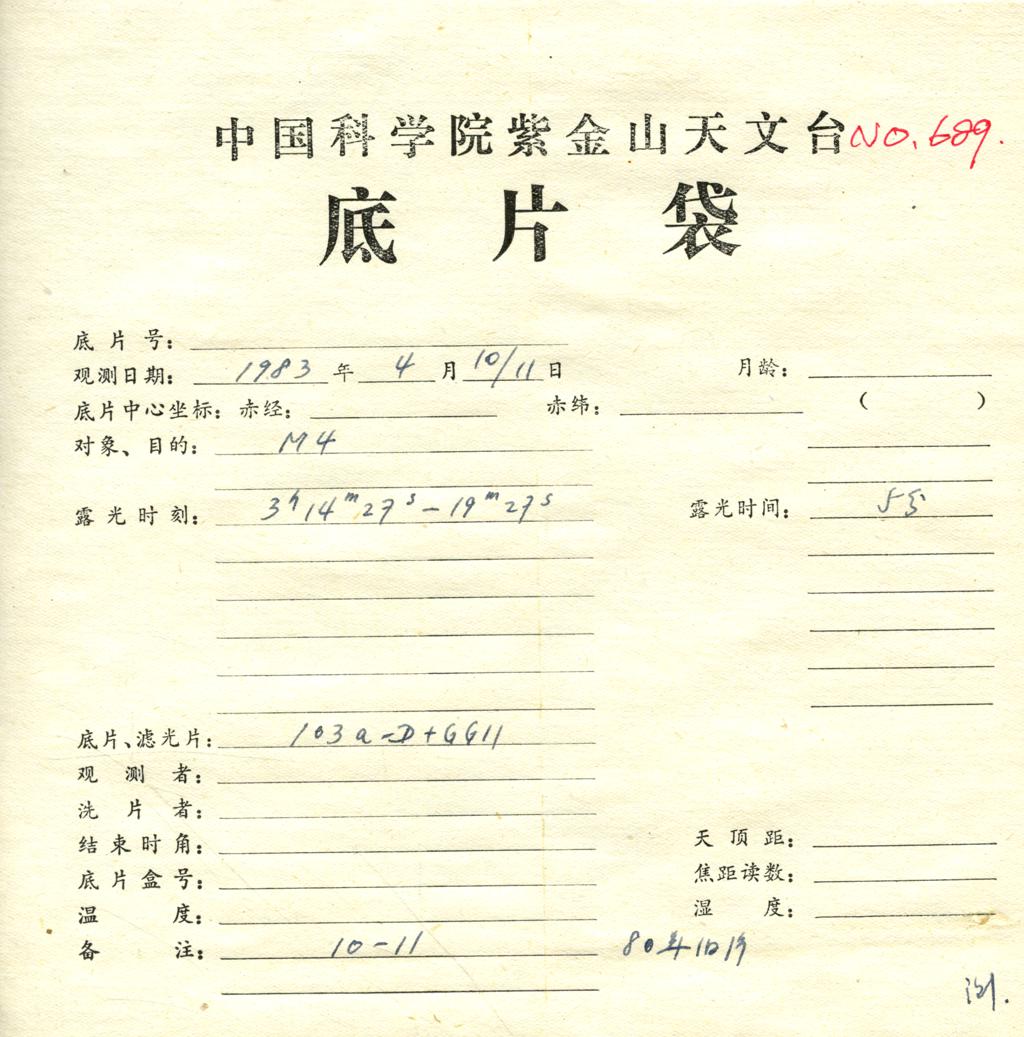 中国科学院紫金山天文台 NO. 689.
底片袋
底片号：
观测日期： 1983 年 4 月 10/11 日 月龄：
底片中心坐标：赤经： 赤纬： （ ）
对象、目的： M4
露光时刻： 3h14m27s－19m27s 露光时间： 5分
底片、滤光片： 103a-D+GG11
观测者：
洗片者：
结束时角： 天顶距：
底片盒号： 焦距读数：
温度： 湿度：
备注： 10-11 80年10月